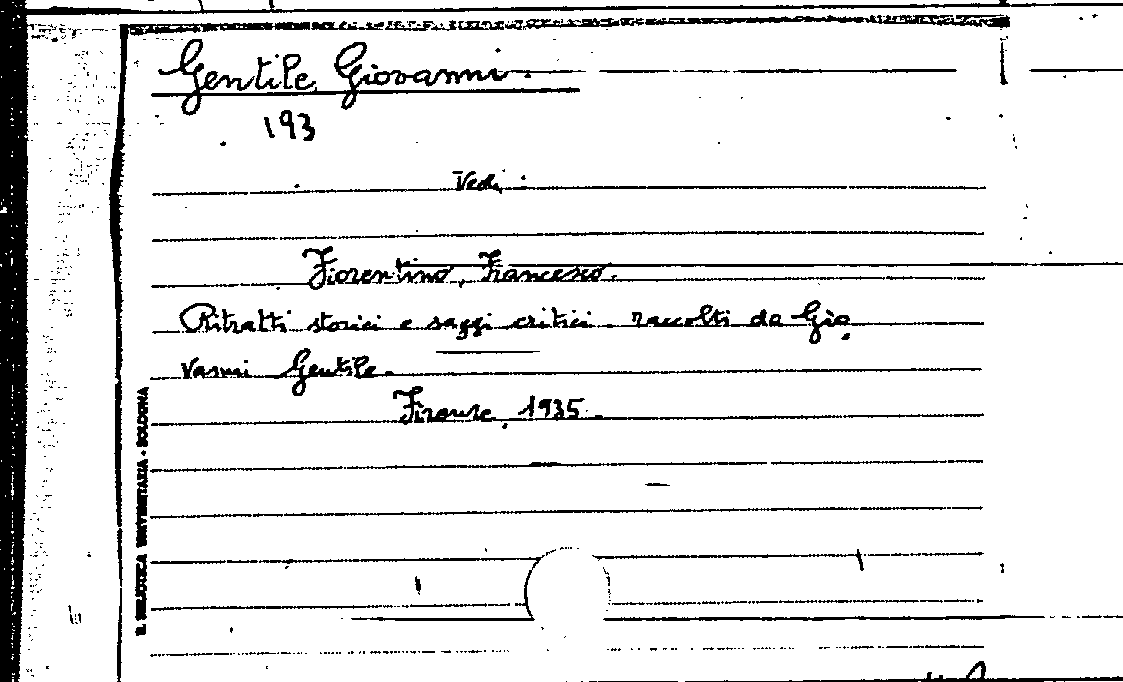 Gentile Giovanni.
193
Vedi:
Fiorentino, Francesco.
Ritratti storici e saggi critici raccolti da Gio
vanni Gentile.
Firenze, 1935.
R. BIBLIOTECA UNIVERSITARIA - BOLOGNA